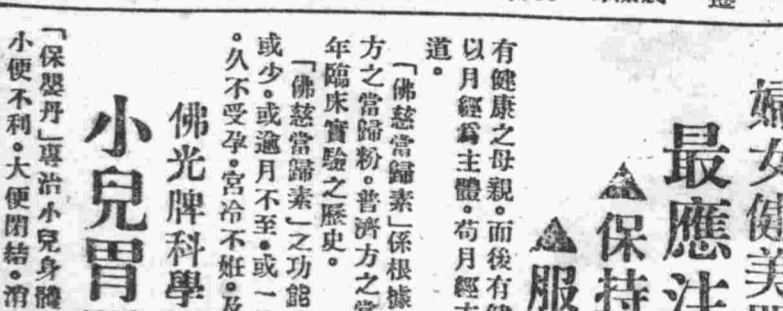 婦女健美
最應注
▲保持
▲服
有健康之母親。而後有健
以月經為主體。苟月經
道。
「佛慈當歸素」係根據
方之當歸粉。普濟方之當
年臨床實驗之歷史。
「佛慈當歸素」之功能
或少。或逾月不至。或一
。久不受孕。宮冷不姙。及
佛光牌科學
小兒胃
「保嬰丹」專治小兒身體
小便不利。大便閉結。消